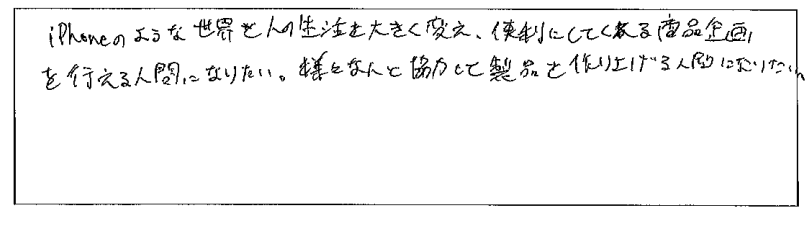 iPhoneのような世界と人の生活を大きく変え、便利にしてくれる商品企画
を行える人間になりたい。様々な人と協力して製品を作り上げる人間になりたい。